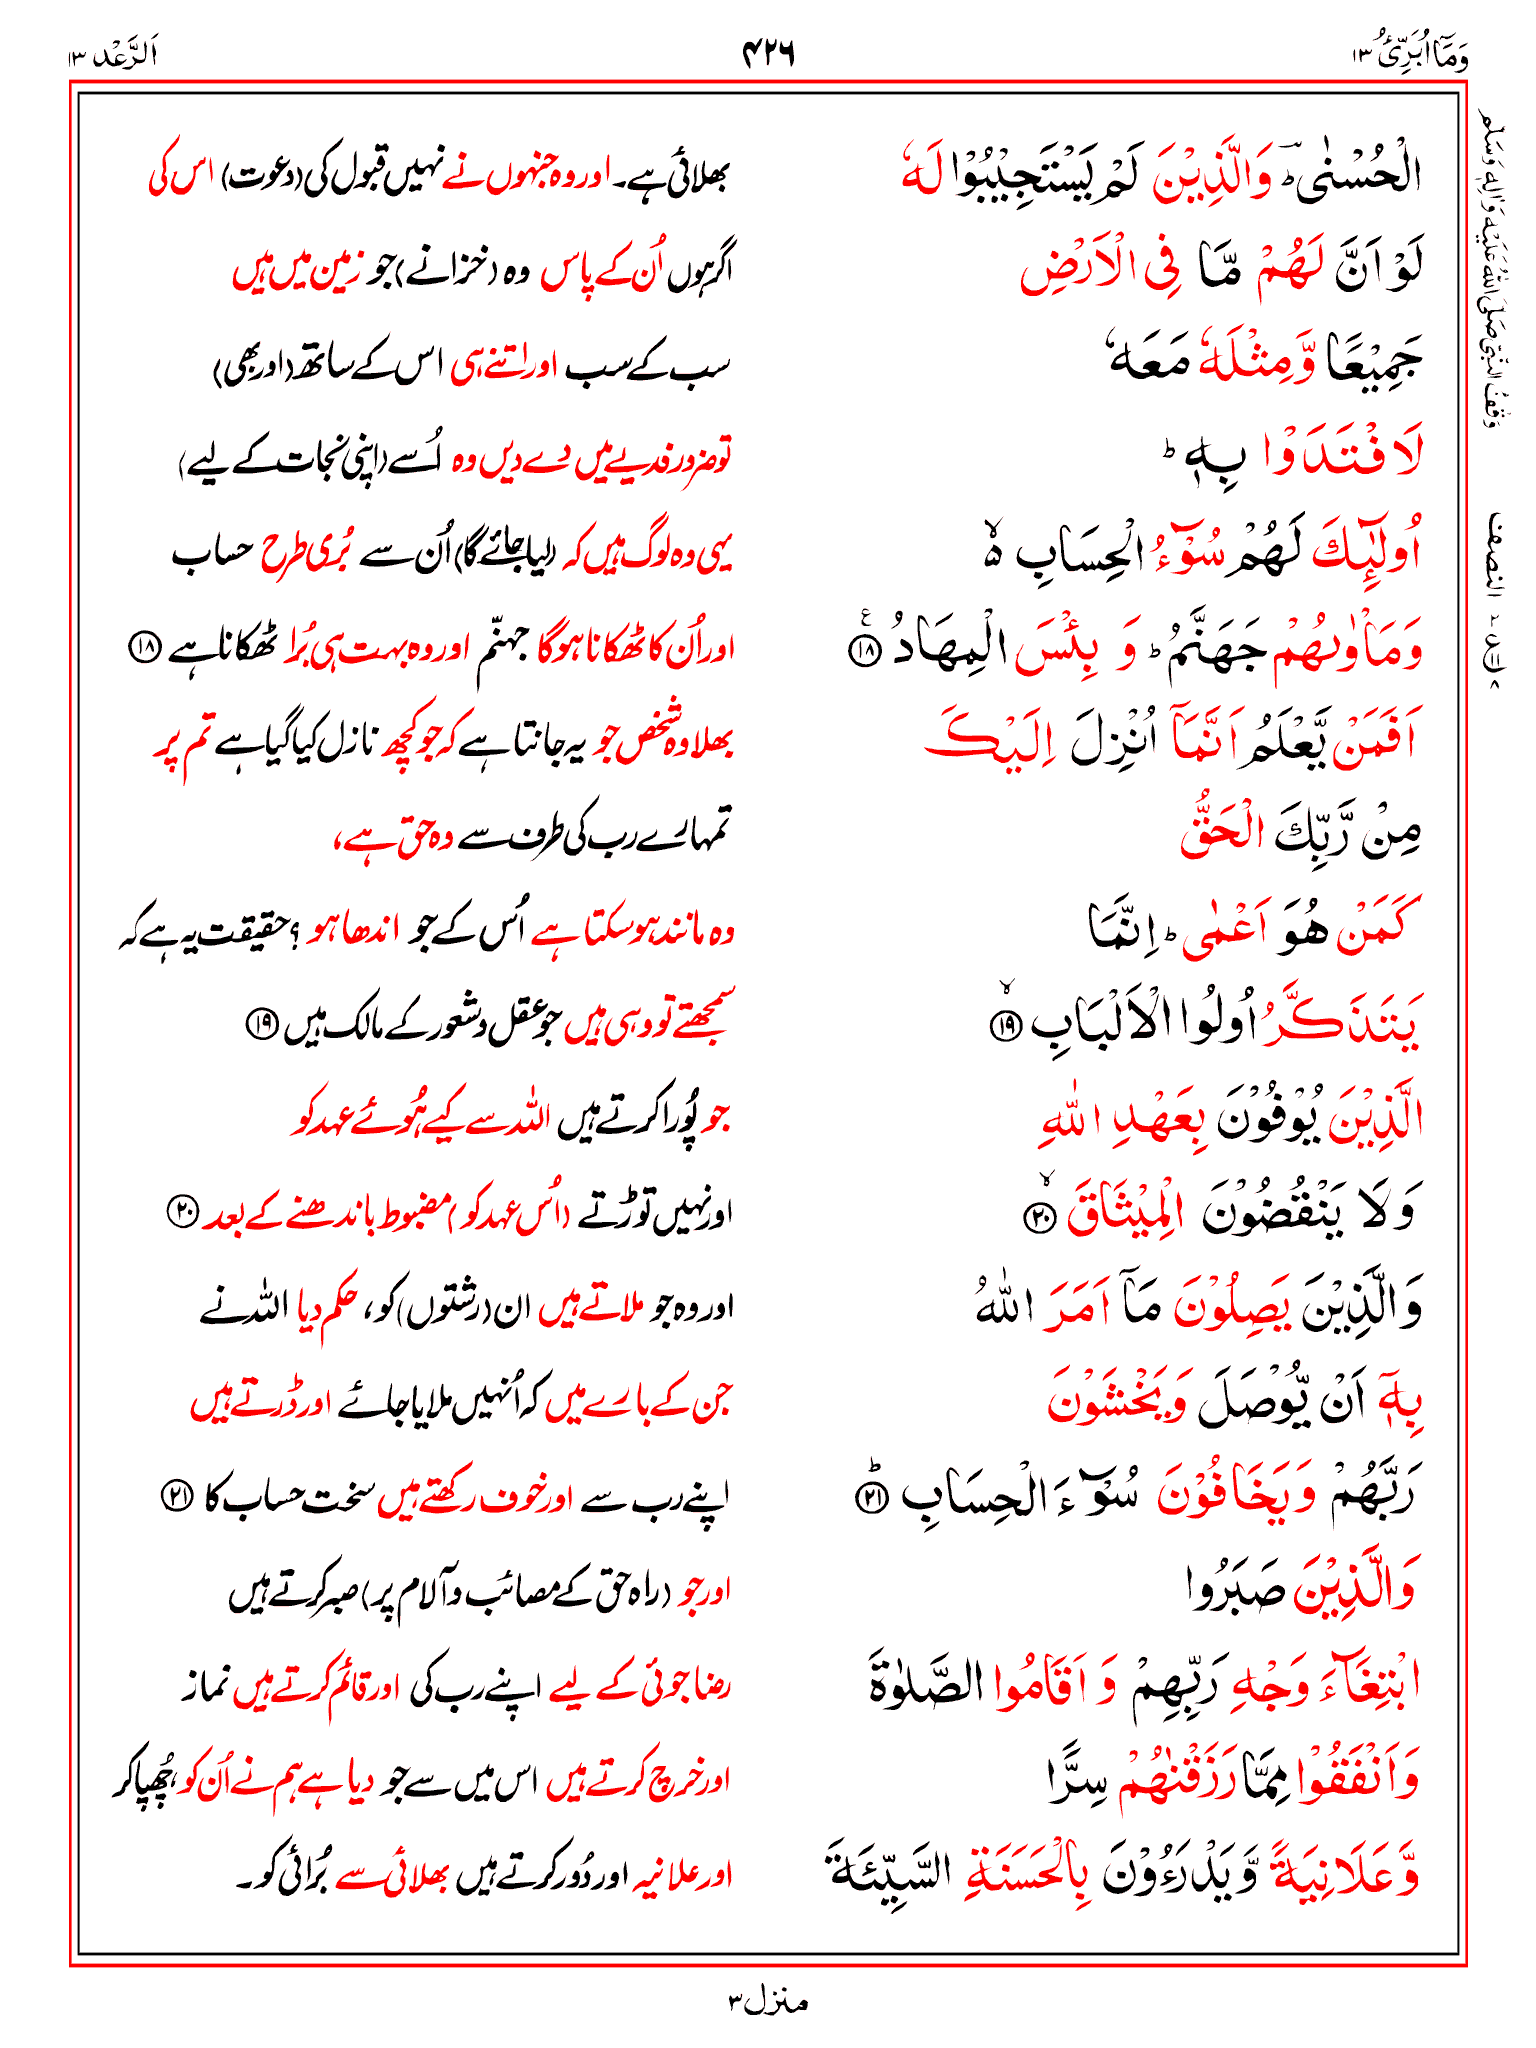 وَمَآ اُبَرِّئُ ۱۳
۴۲۶
اَلرَّعْد ۱۳
الْحُسْنٰى ؕ وَالَّذِيْنَ لَمْ يَسْتَجِيْبُوْا لَهٗ
بھلائی ہے۔ اور وہ جنہوں نے نہیں قبول کی (دعوت) اس کی
لَوْ اَنَّ لَهُمْ مَّا فِى الْاَرْضِ
اگر ہوں اُن کے پاس وہ (خزانے) جو زمین میں ہیں
جَمِيْعًا وَّمِثْلَهٗ مَعَهٗ
سب کے سب اور اتنے ہی اس کے ساتھ (اور بھی)
لَافْتَدَوْا بِهٖ ؕ
تو ضرور فدیے میں دے دیں وہ اُسے (اپنی نجات کے لیے)
اُولٰٓئِكَ لَهُمْ سُوْٓءُ الْحِسَابِ ۙ۬
یہی وہ لوگ ہیں کہ (لیا جائے گا) اُن سے بُری طرح حساب
وَمَاْوٰىهُمْ جَهَنَّمُ ؕ وَ بِئْسَ الْمِهَادُ ۧ ۱۸
اور اُن کا ٹھکانا ہوگا جہنّم اور وہ بہت ہی بُرا ٹھکانا ہے ۱۸
اَفَمَنْ يَّعْلَمُ اَنَّمَآ اُنْزِلَ اِلَيْكَ
بھلا وہ شخص جو یہ جانتا ہے کہ جو کچھ نازل کیا گیا ہے تم پر
مِنْ رَّبِّكَ الْحَقُّ
تمہارے رب کی طرف سے وہ حق ہے،
كَمَنْ هُوَ اَعْمٰى ؕ اِنَّمَا
وہ مانند ہو سکتا ہے اُس کے جو اندھا ہو ؟ حقیقت یہ ہے کہ
يَتَذَكَّرُ اُولُوا الْاَلْبَابِ ۙ ۱۹
سمجھتے تو وہی ہیں جو عقل و شعور کے مالک ہیں ۱۹
الَّذِيْنَ يُوْفُوْنَ بِعَهْدِ اللّٰهِ
جو پُورا کرتے ہیں اللہ سے کیے ہُوئے عہد کو
وَلَا يَنْقُضُوْنَ الْمِيْثَاقَ ۙ ۲۰
اور نہیں توڑتے (اُس عہد کو) مضبوط باندھنے کے بعد ۲۰
وَالَّذِيْنَ يَصِلُوْنَ مَآ اَمَرَ اللّٰهُ
اور وہ جو ملاتے ہیں ان (رشتوں) کو، حکم دیا اللہ نے
بِهٖٓ اَنْ يُّوْصَلَ وَيَخْشَوْنَ
جن کے بارے میں کہ اُنہیں ملایا جائے اور ڈرتے ہیں
رَبَّهُمْ وَيَخَافُوْنَ سُوْٓءَ الْحِسَابِ ؕ ۲۱
اپنے رب سے اور خوف رکھتے ہیں سخت حساب کا ۲۱
وَالَّذِيْنَ صَبَرُوا
اور جو (راہِ حق کے مصائب و آلام پر) صبر کرتے ہیں
ابْتِغَآءَ وَجْهِ رَبِّهِمْ وَ اَقَامُوا الصَّلٰوةَ
رضا جوئی کے لیے اپنے رب کی اور قائم کرتے ہیں نماز
وَاَنْفَقُوْا مِمَّا رَزَقْنٰهُمْ سِرًّا
اور خرچ کرتے ہیں اس میں سے جو دیا ہے ہم نے اُن کو، چُھپا کر
وَّعَلَانِيَةً وَّيَدْرَءُوْنَ بِالْحَسَنَةِ السَّيِّئَةَ
اور علانیہ اور دُور کرتے ہیں بھلائی سے بُرائی کو۔
وَقْفُ النَّبِىِّ صَلَّى اللّٰهُ عَلَيْهِ وَاٰلِهٖ وَسَلَّم
النصف
منزل ۳